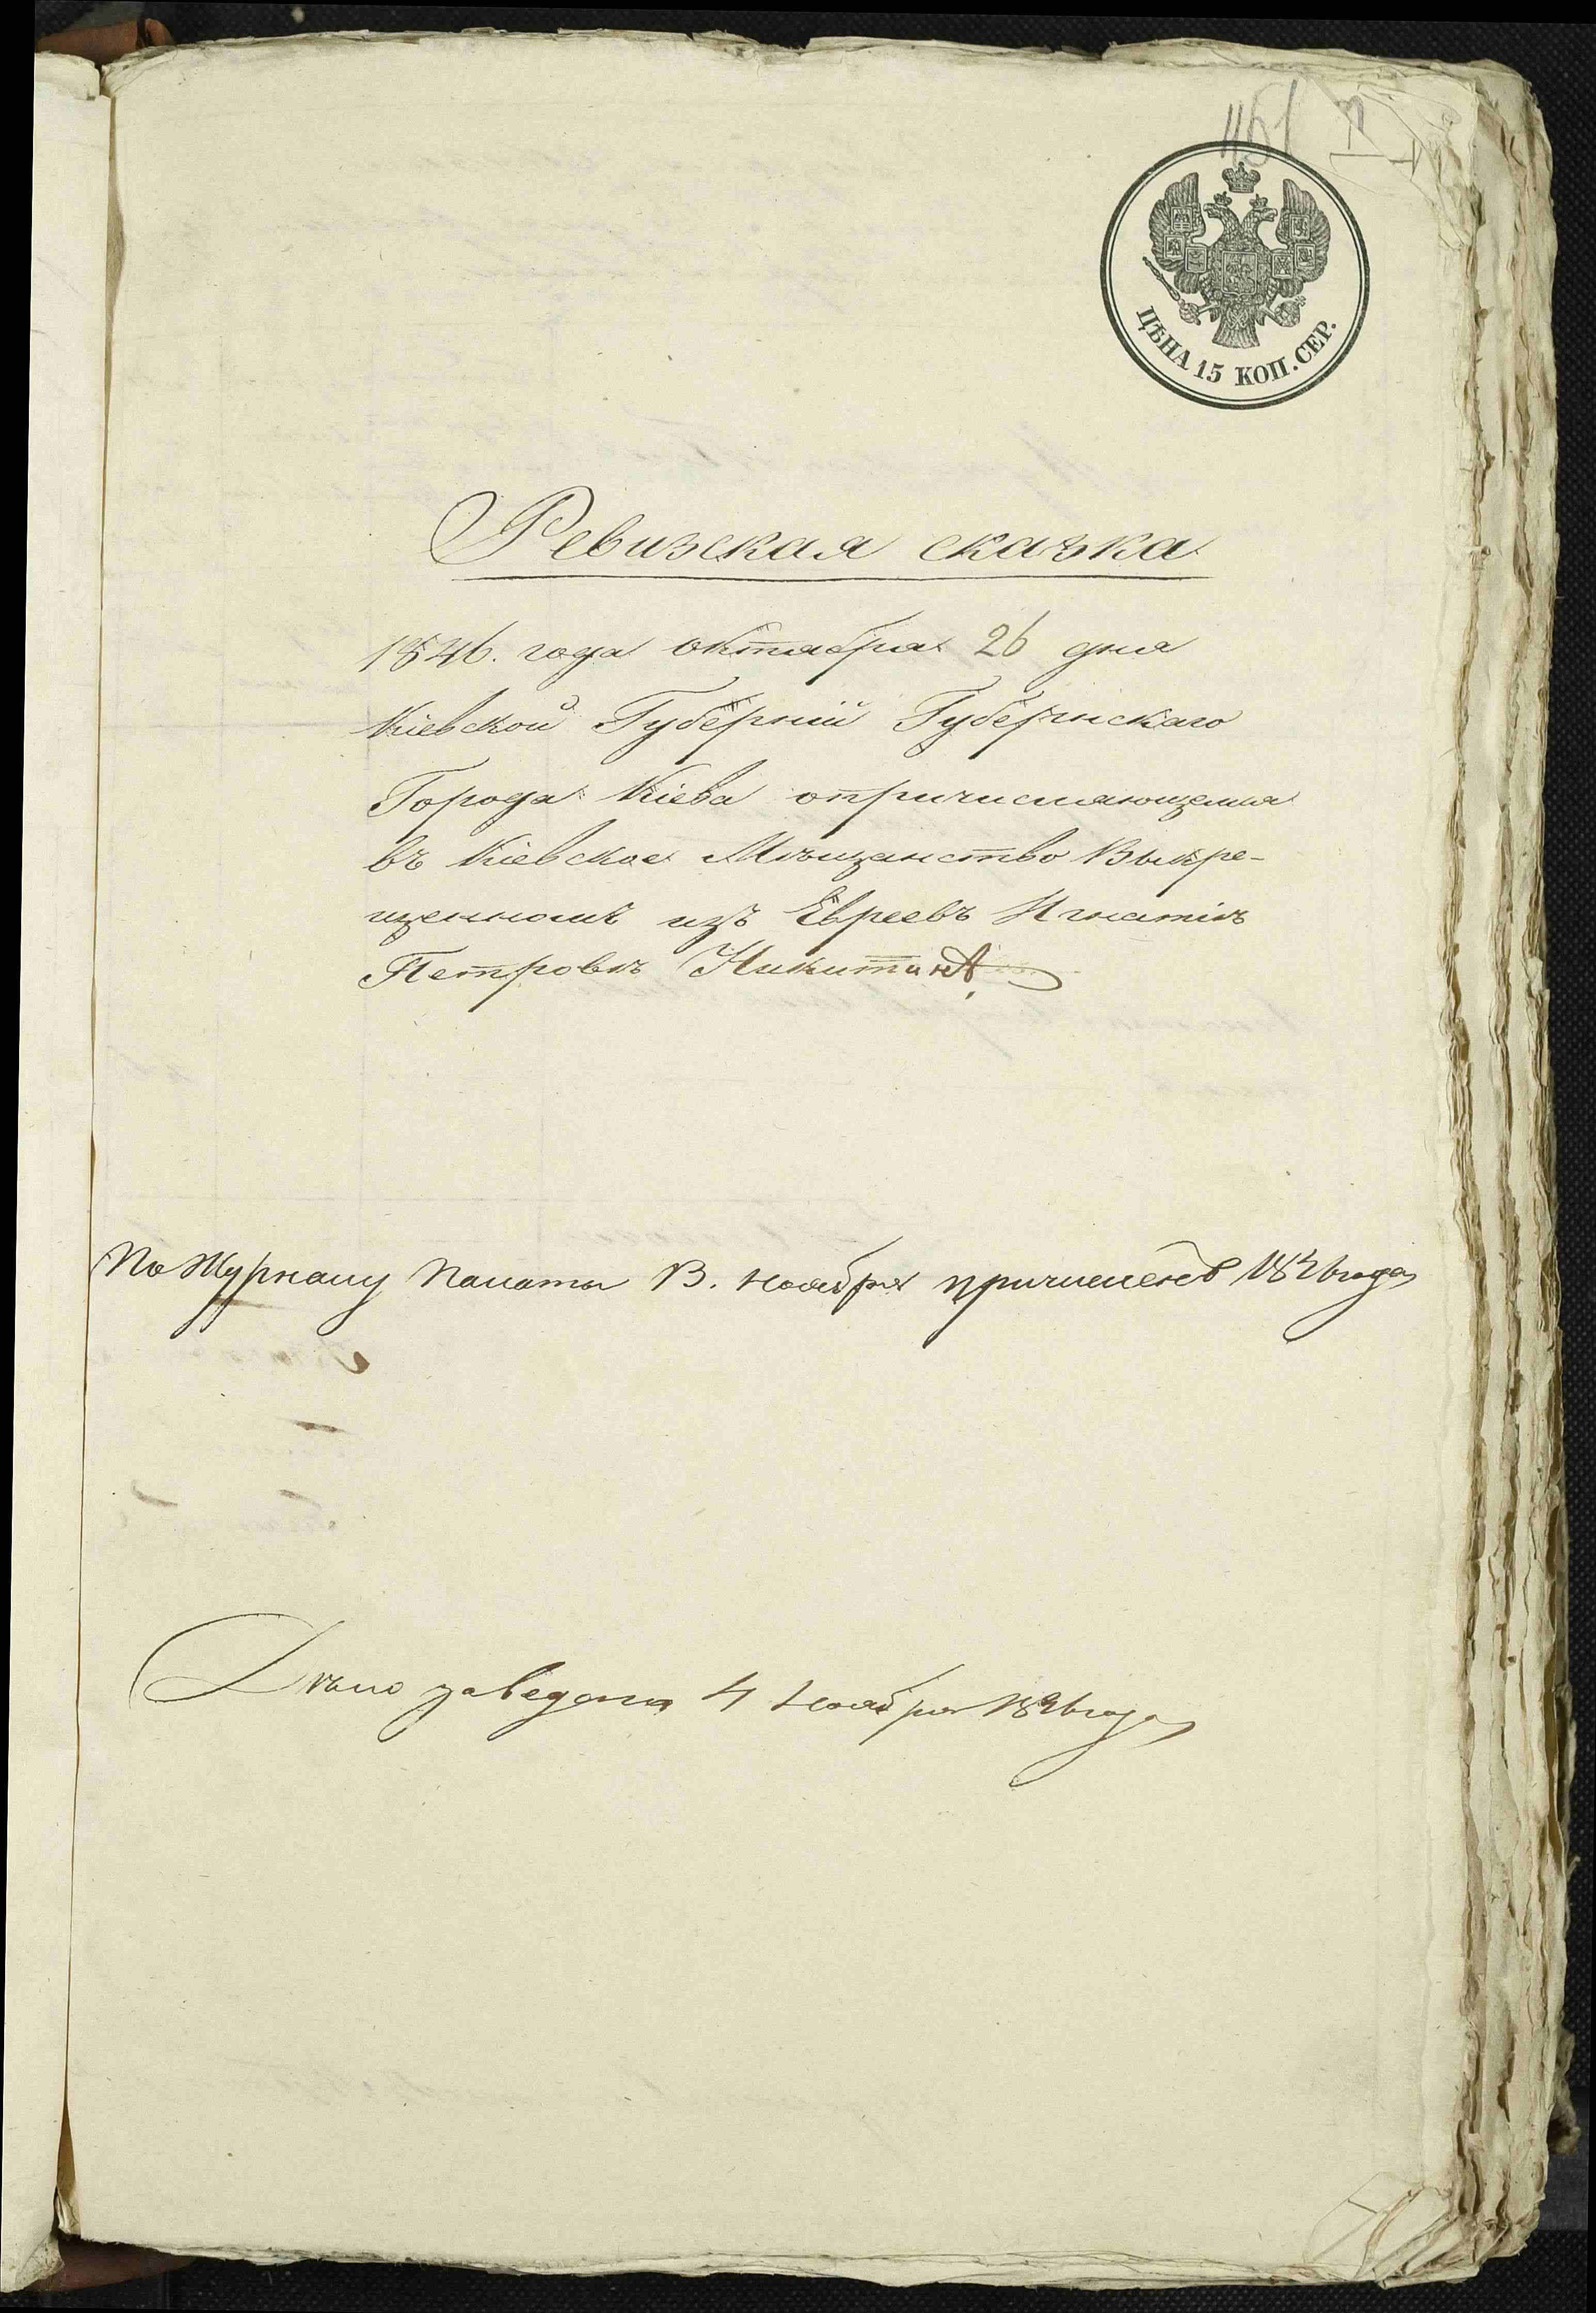 1151
ЦѢНА 15 КОП. СЕР.
Ревизская сказка
1846. года октября 26 дня
Кіевской Губерніи Губернскаго
Города Кіева опричисляющемся
въ Кіевское Мѣщанство Выкре-
щенномъ изъ Евреевъ Игнатіѣ
Петровѣ Никитинѣ
По Журналу Палаты 13. ноября причисленъ 1846 года
Дѣло заведено 4 ноября 1846 года